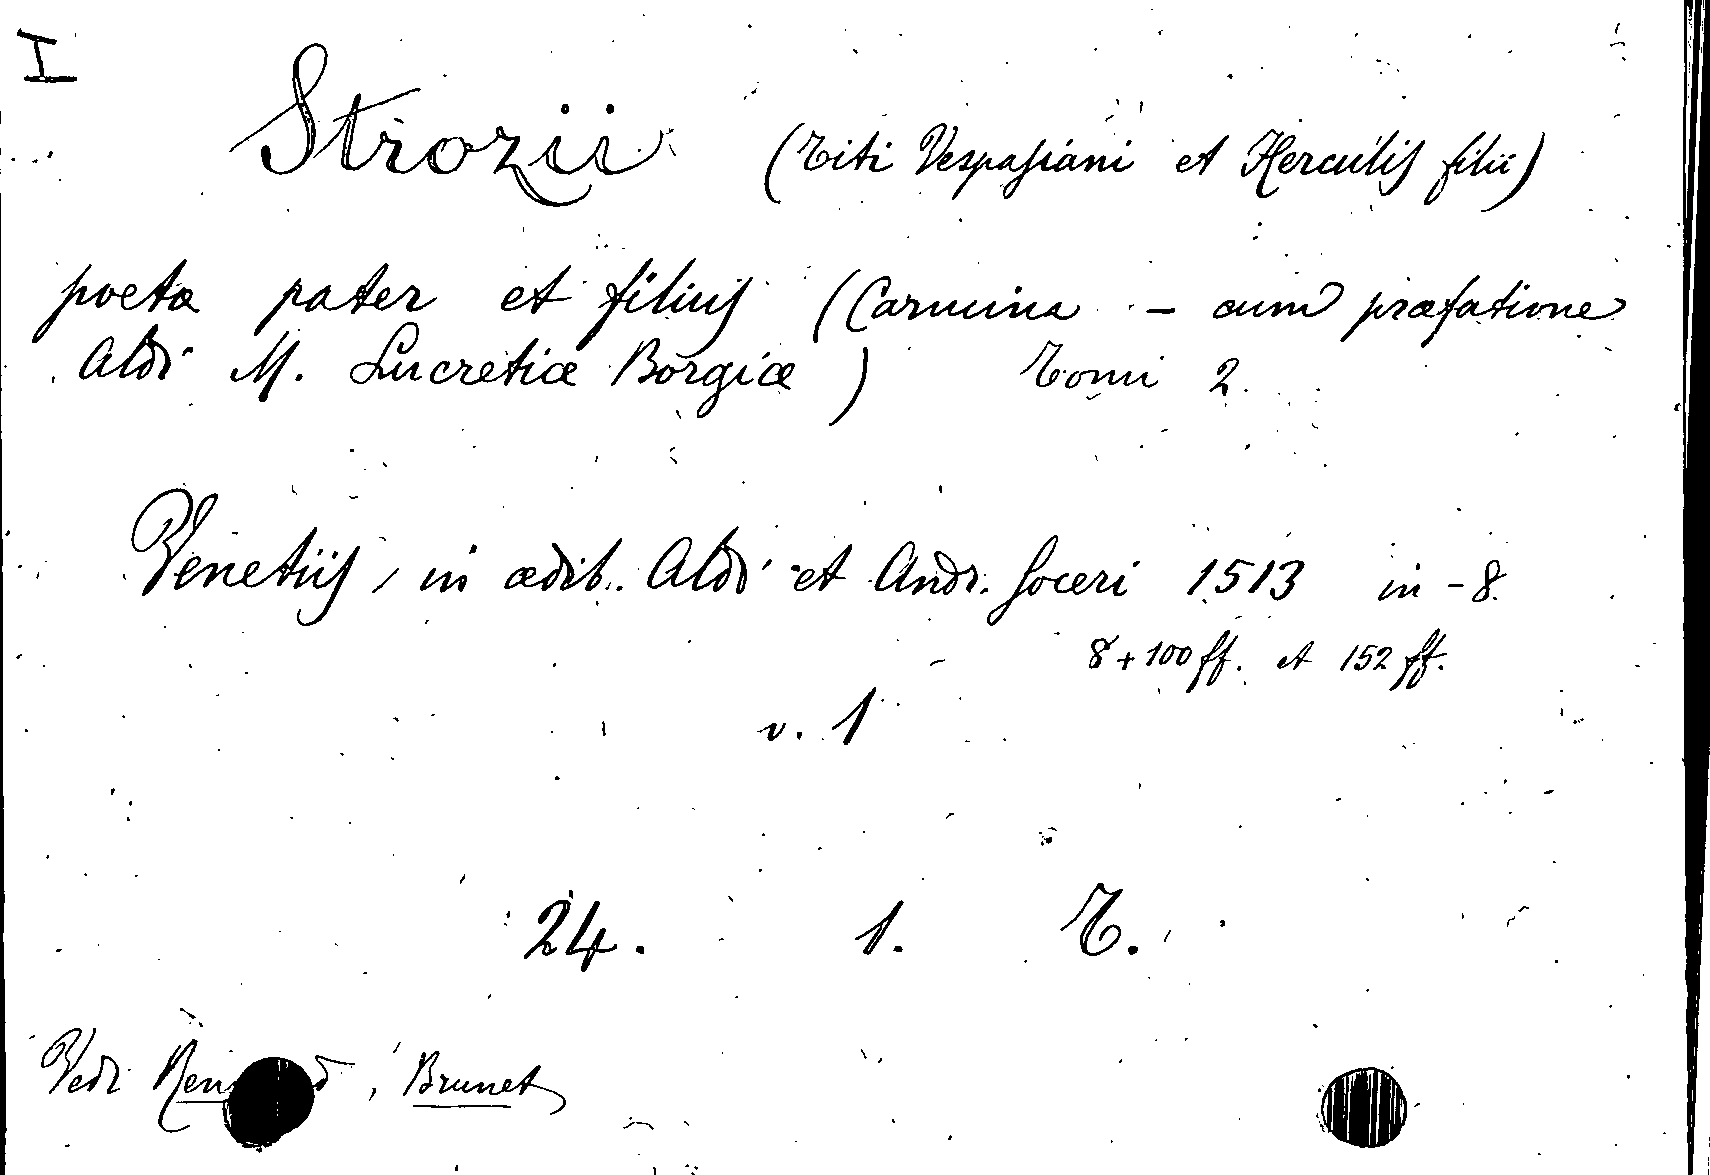 I
Strozii (Titi Vespasiani et Herculis filii)
poetæ pater et filius (Carmina - cum præfatione
Aldi M. Lucretiæ Borgiæ) Tomi 2.
Venetiis, in ædib. Aldi et Andr. Soceri 1513 in-8.
8+100 ff. et 152 ff.
v. 1
24. 1. T.
Vedi , Brunet